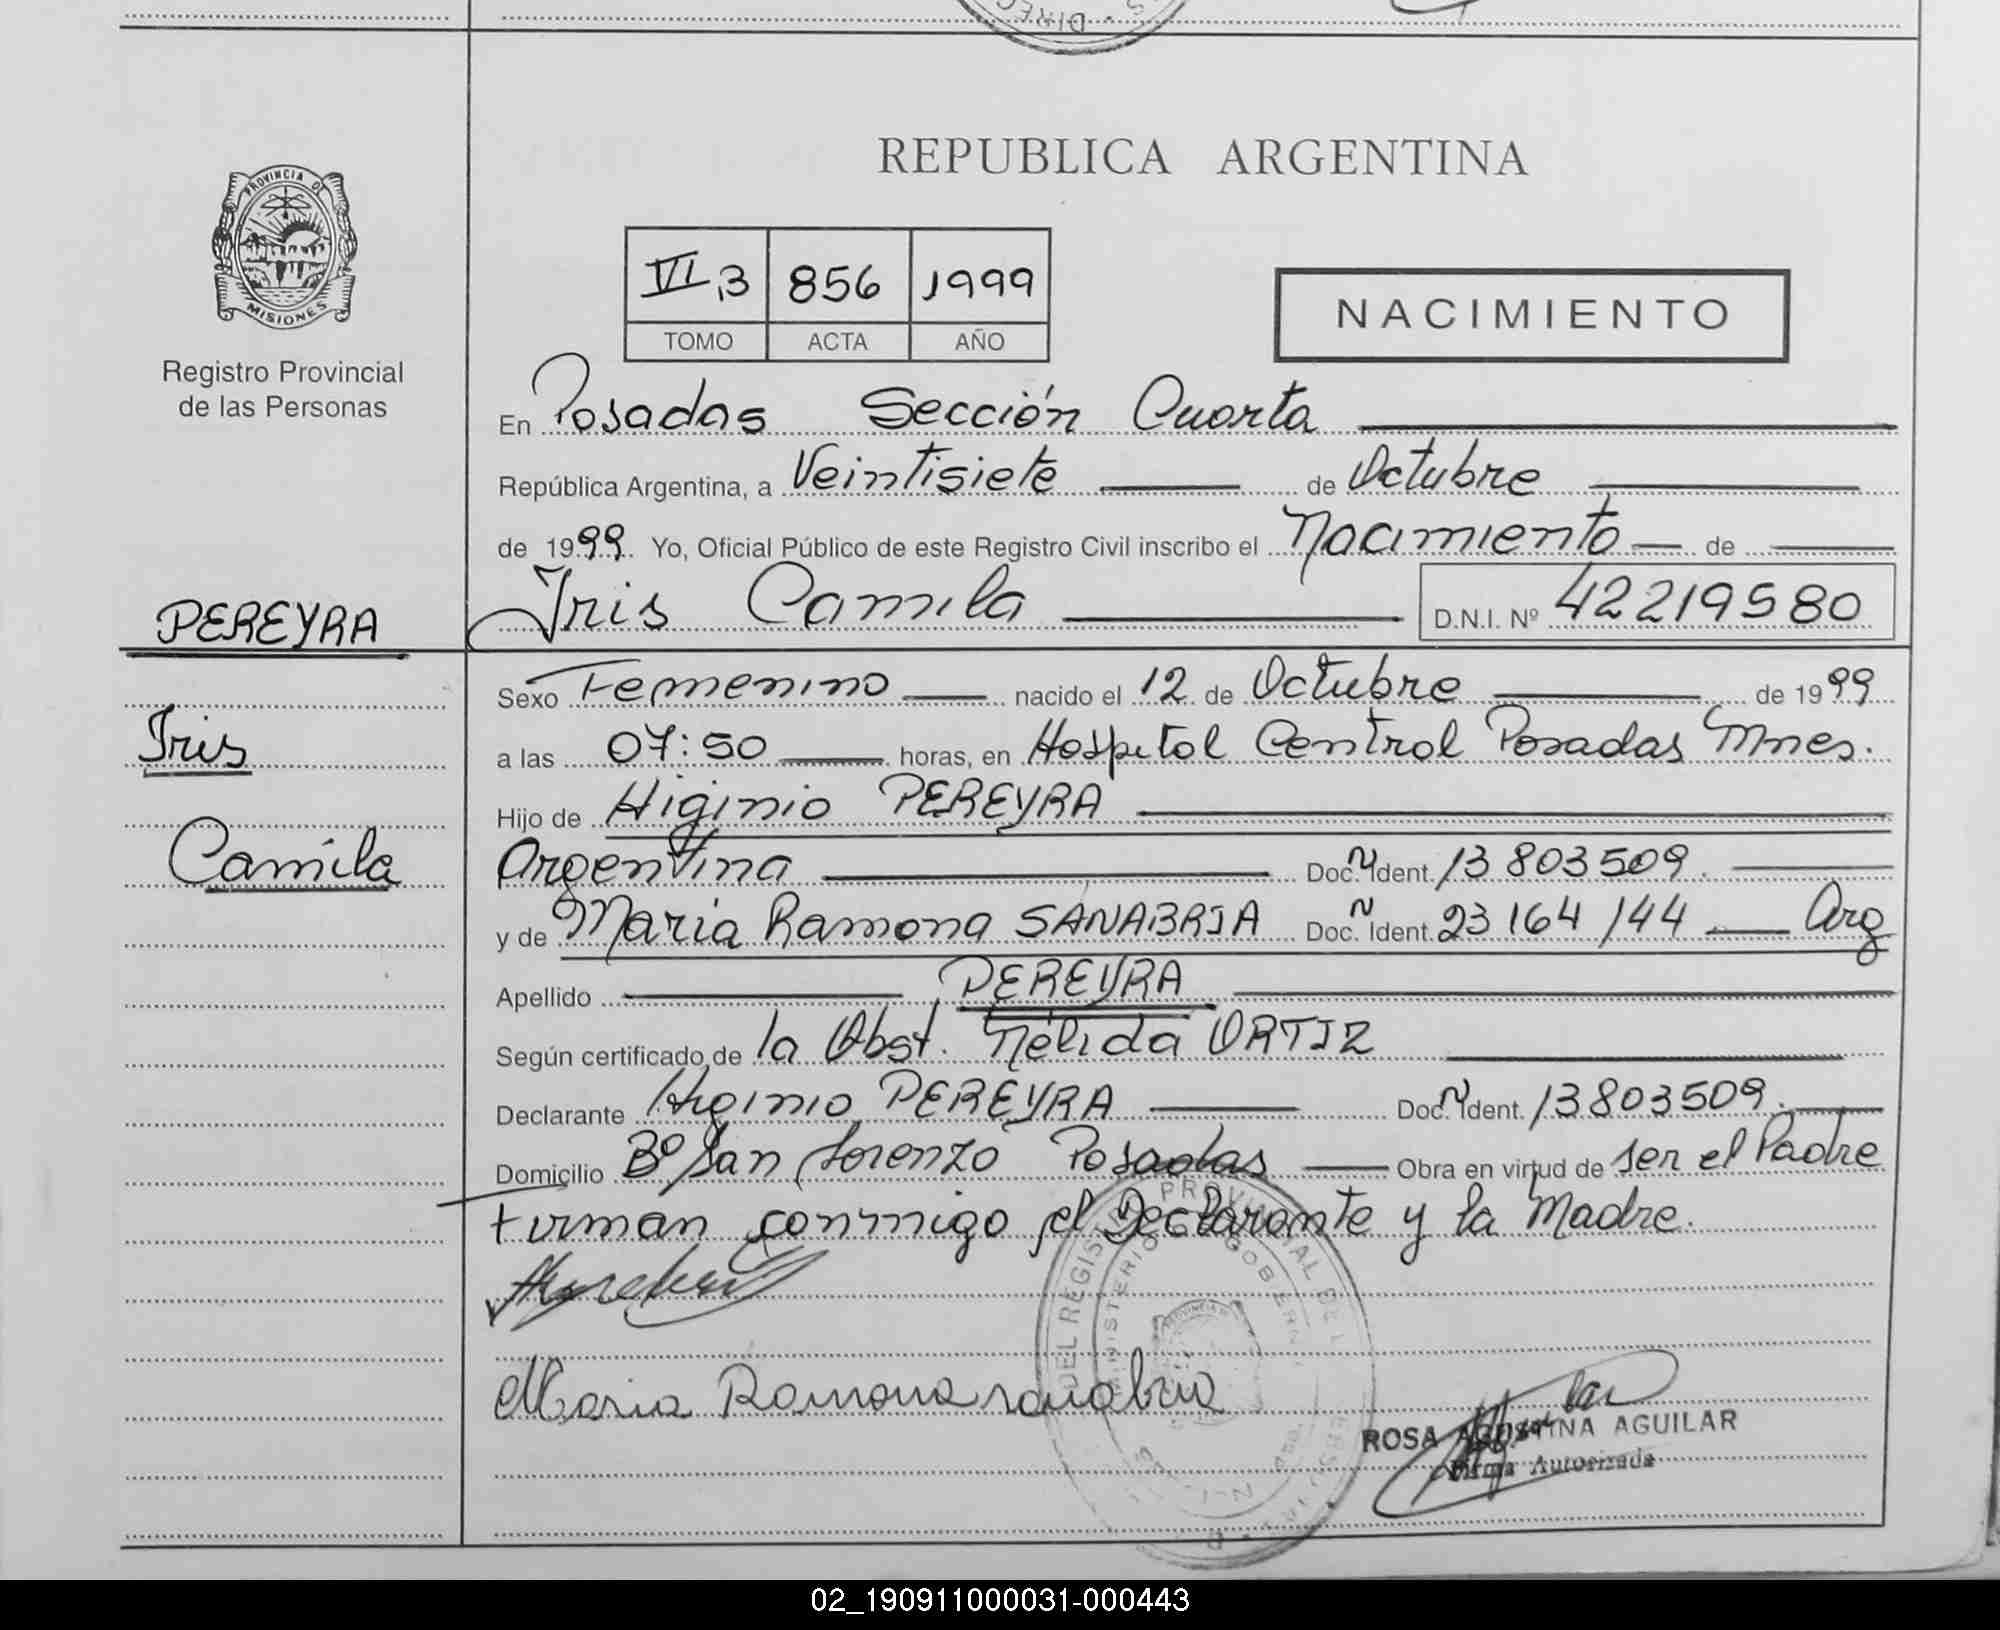 PROVINCIA DE
MISIONES
Registro Provincial
de las Personas
PEREYRA
Iris
Camila
REPUBLICA ARGENTINA
VI,3 856 1999
TOMO ACTA AÑO
NACIMIENTO
En Posadas Sección Cuarta
República Argentina, a Veintisiete de Octubre
de 1999. Yo, Oficial Público de este Registro Civil inscribo el Nacimiento de
Iris Camila D.N.I. Nº 42219580
Sexo Femenino nacido el 12 de Octubre de 1999
a las 07:50 horas, en Hospital Central Posadas Mnes.
Hijo de Higinio PEREYRA
Argentina Doc. Ident. 13 803 509.
y de Maria Ramona SANABRIA Doc. Ident. 23 164 144 Arg
Apellido PEREYRA
Según certificado de la Obst. Nélida ORTIZ
Declarante Higinio PEREYRA Doc. Ident. 13803509.
Domicilio Bº San Lorenzo Posadas Obra en virtud de ser el Padre
Firman conmigo el Declarante y la Madre.
Maria Ramona Sanabria
ROSA AGUSTINA AGUILAR
Firma Autorizada
02_190911000031-000443